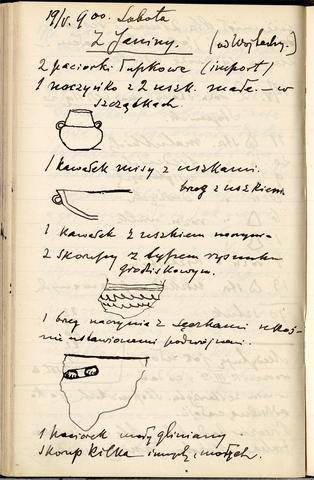 19/V. 9 00. Sobota
Z Janiny. (od Wojtachy.)
2 paciorki łupkowe (import)
1 naczyńko z 2 uszk. małe. – w
szczątkach.
1 kawałek misy z uszkami.
brzeg z uszkiem
1 kawałek z uszkiem naczynia
2 skorupy z typem rysunku
grodziskowym.
1 brzeg naczynia z sęczkami
ustawionemi podwójnemi.
1 paciorek mały gliniany
skorup kilka innych, małych.